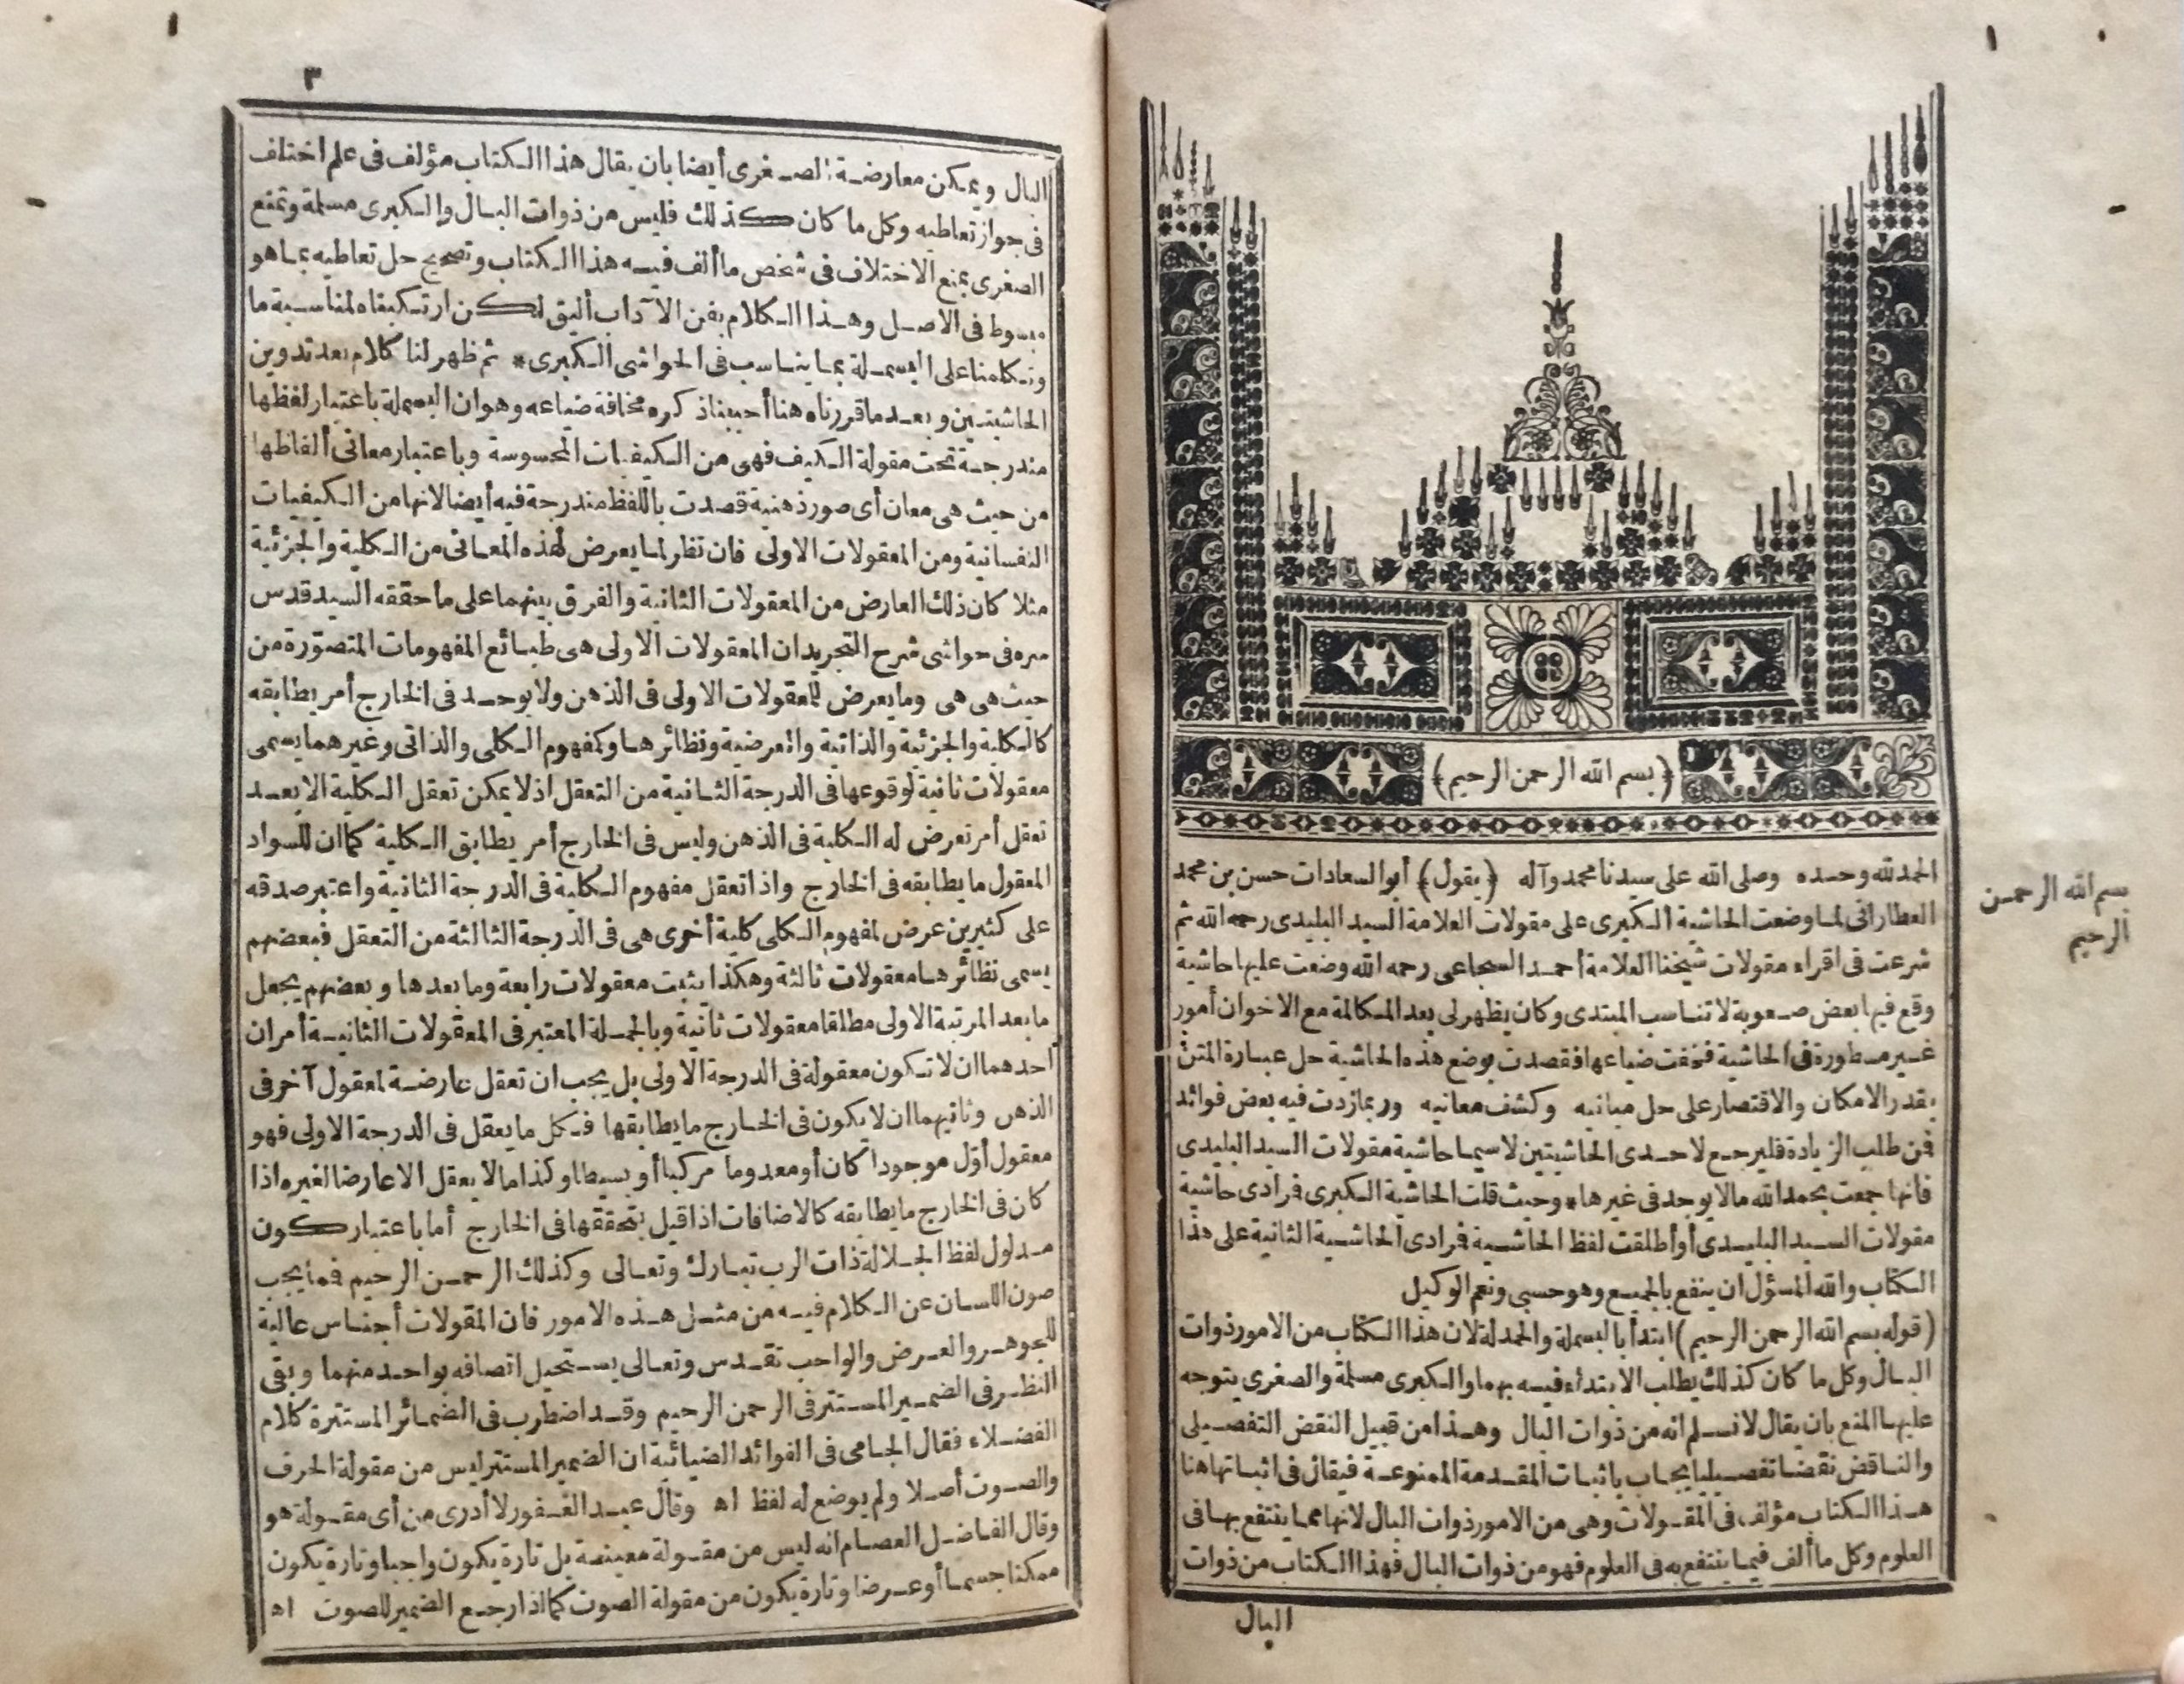 ﴿بسم الله الرحمن الرحيم﴾
الحمد لله وحده وصلى الله على سيدنا محمد وآله ﴿يقول﴾ أبو السعادات حسن بن محمد
العطار انى لما وضعت الحاشية الكبرى على مقولات العلامة السيد البليدى رحمه الله ثم
شرعت فى اقراء مقولات شيخنا العلامة أحمد السجاعى رحمه الله وضعت عليها حاشية
وقع فيها بعض صعوبة لا تناسب المبتدى وكان يظهر لى بعد المكالمة مع الاخوان أمور
غير مسطورة فى الحاشية فخفت ضياعها فقصدت بوضع هذه الحاشية حل عبارة المتن
بقدر الامكان والاقتصار على حل مبانيه وكشف معانيه وربما زدت فيه بعض فوائد
فمن طلب الزيادة فليرجع لاحدى الحاشيتين لاسيما حاشية مقولات السيد البليدى
فانها جمعت بحمد الله مالا يوجد فى غيرها * وحيث قلت الحاشية الكبرى فرادى حاشية
مقولات السيد البليدى أو أطلقت لفظ الحاشية فرادى الحاشية الثانية على هذا
الكتاب والله المسؤل ان ينفع بالجميع وهو حسبى ونعم الوكيل
(قوله بسم الله الرحمن الرحيم) ابتدأ بالبسملة والحمدلة لان هذا الكتاب من الامور ذوات
البال وكل ما كان كذلك يطلب الابتداء فيه بهما والكبرى مسلمة والصغرى يتوجه
عليها المنع بان يقال لا نسلم انه من ذوات البال وهذا من قبيل النقض التفصيلى
والناقض نقضا تفصيليا يجاب باثبات المقدمة الممنوعة فيقال فى اثباتها هنا
هذا الكتاب مؤلف فى المقولات وهى من الامور ذوات البال لانها مما ينتفع بها فى
العلوم وكل ما ألف فيما ينتفع به فى العلوم فهو من ذوات البال فهذا الكتاب من ذوات
البال
بسم الله الرحمن
الرحيم
٣
البال ويمكن معارضة الصغرى أيضا بان يقال هذا الكتاب مؤلف فى علم اختلف
فى جواز تعاطيه وكل ما كان كذلك فليس من ذوات البال والكبرى مسلمة وتمنع
الصغرى بمنع الاختلاف فى شخص ما ألف فيه هذا الكتاب وتصحيح حل تعاطيه بما هو
مبسوط فى الاصل وهذا الكلام بفن الآداب أليق لكن ارتكبناه لمناسبة ما
وتكلمنا على البسملة بما يناسب فى الحواشى الكبرى * ثم ظهر لنا كلام بعد تدوين
الحاشيتين وبعد ما قررناه هنا أحببنا ذكره مخافة ضياعه وهو ان البسملة باعتبار لفظها
مندرجة تحت مقولة الكيف فهى من الكيفيات المحسوسة وباعتبار معانى ألفاظها
من حيث هى معان أى صور ذهنية قصدت باللفظ مندرجة فيه أيضا لانها من الكيفيات
النفسانية ومن المعقولات الاولى فان نظر لما يعرض لهذه المعانى من الكلية والجزئية
مثلا كان ذلك العارض من المعقولات الثانية والفرق بينهما على ما حققه السيد قدس
سره فى حواشى شرح التجريد ان المعقولات الاولى هى طبائع المفهومات المتصورة من
حيث هى هى وما يعرض للمعقولات الاولى فى الذهن ولا يوجد فى الخارج أمر يطابقه
كالكلية والجزئية والذاتية والعرضية ونظائرها وكمفهوم الكلى والذاتى وغيرهما يسمى
معقولات ثانية لوقوعها فى الدرجة الثانية من التعقل اذ لا يمكن تعقل الكلية الا بعد
تعقل أمر تعرض له الكلية فى الذهن وليس فى الخارج أمر يطابق الكلية كما ان للسواد
المعقول ما يطابقه فى الخارج واذا تعقل مفهوم الكلية فى الدرجة الثانية واعتبر صدقه
على كثيرين عرض لمفهوم الكلى كلية أخرى هى فى الدرجة الثالثة من التعقل فبعضهم
يسمى نظائرها معقولات ثالثة وهكذا يثبت معقولات رابعة وما بعدها وبعضهم يجعل
ما بعد المرتبة الاولى مطلقا معقولات ثانية وبالجملة المعتبر فى المعقولات الثانية أمران
أحدهما ان لا تكون معقولة فى الدرجة الاولى بل يجب ان تعقل عارضة لمعقول آخر فى
الذهن وثانيهما ان لا يكون فى الخارج ما يطابقها فكل ما يعقل فى الدرجة الاولى فهو
معقول أول موجودا كان أو معدوما مركبا أو بسيطا وكذا ما لا يعقل الا عارضا لغيره اذا
كان فى الخارج ما يطابقه كالاضافات اذا قيل بتحققها فى الخارج أما باعتبار كون
مدلول لفظ الجلالة ذات الرب تبارك وتعالى وكذلك الرحمن الرحيم فمما يجب
صون اللسان عن الكلام فيه من مثل هذه الامور فان المقولات أجناس عالية
للجوهر والعرض والواجب تقدس وتعالى يستحيل اتصافه بواحد منهما وبقى
النظر فى الضمير المستتر فى الرحمن الرحيم وقد اضطرب فى الضمائر المستترة كلام
الفضلاء فقال الجامى فى الفوائد الضيائية ان الضمير المستتر ليس من مقولة الحرف
والصوت أصلا ولم يوضع له لفظ اه وقال عبد الغفور لا أدرى من أى مقولة هو
وقال الفاضل العصام انه ليس من مقولة معينة بل تارة يكون واجبا وتارة يكون
ممكنا جسما أو عرضا وتارة يكون من مقولة الصوت كما اذا رجع الضمير للصوت اه